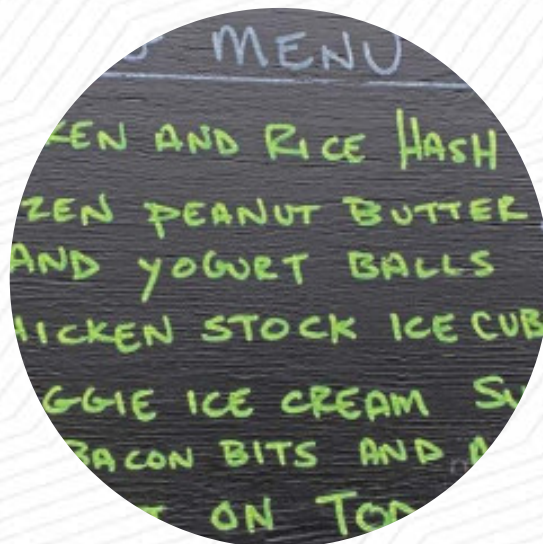 MENU
KEN AND RICE HASH
ZEN PEANUT BUTTER
AND YOGURT BALLS
HICKEN STOCK ICE CUB
GGIE ICE CREAM SU
BACON BITS AND A
ON TOP